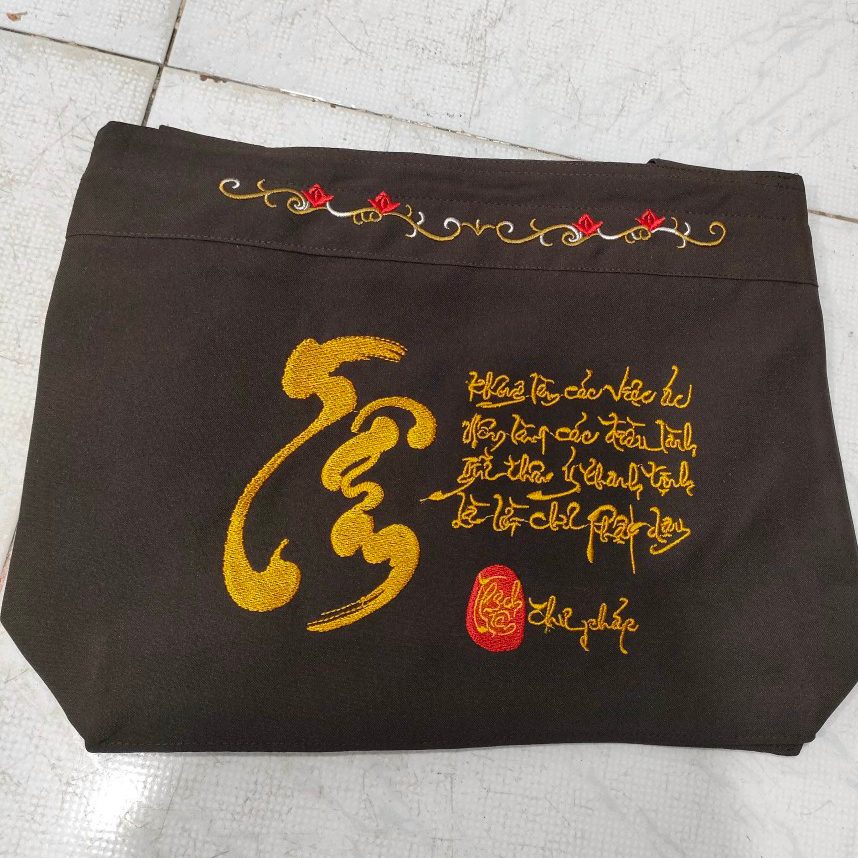 Không làm các việc ác
làm các điều lành
Giữ thân ý thanh tịnh
Là lời chư Phật dạy
Thư pháp